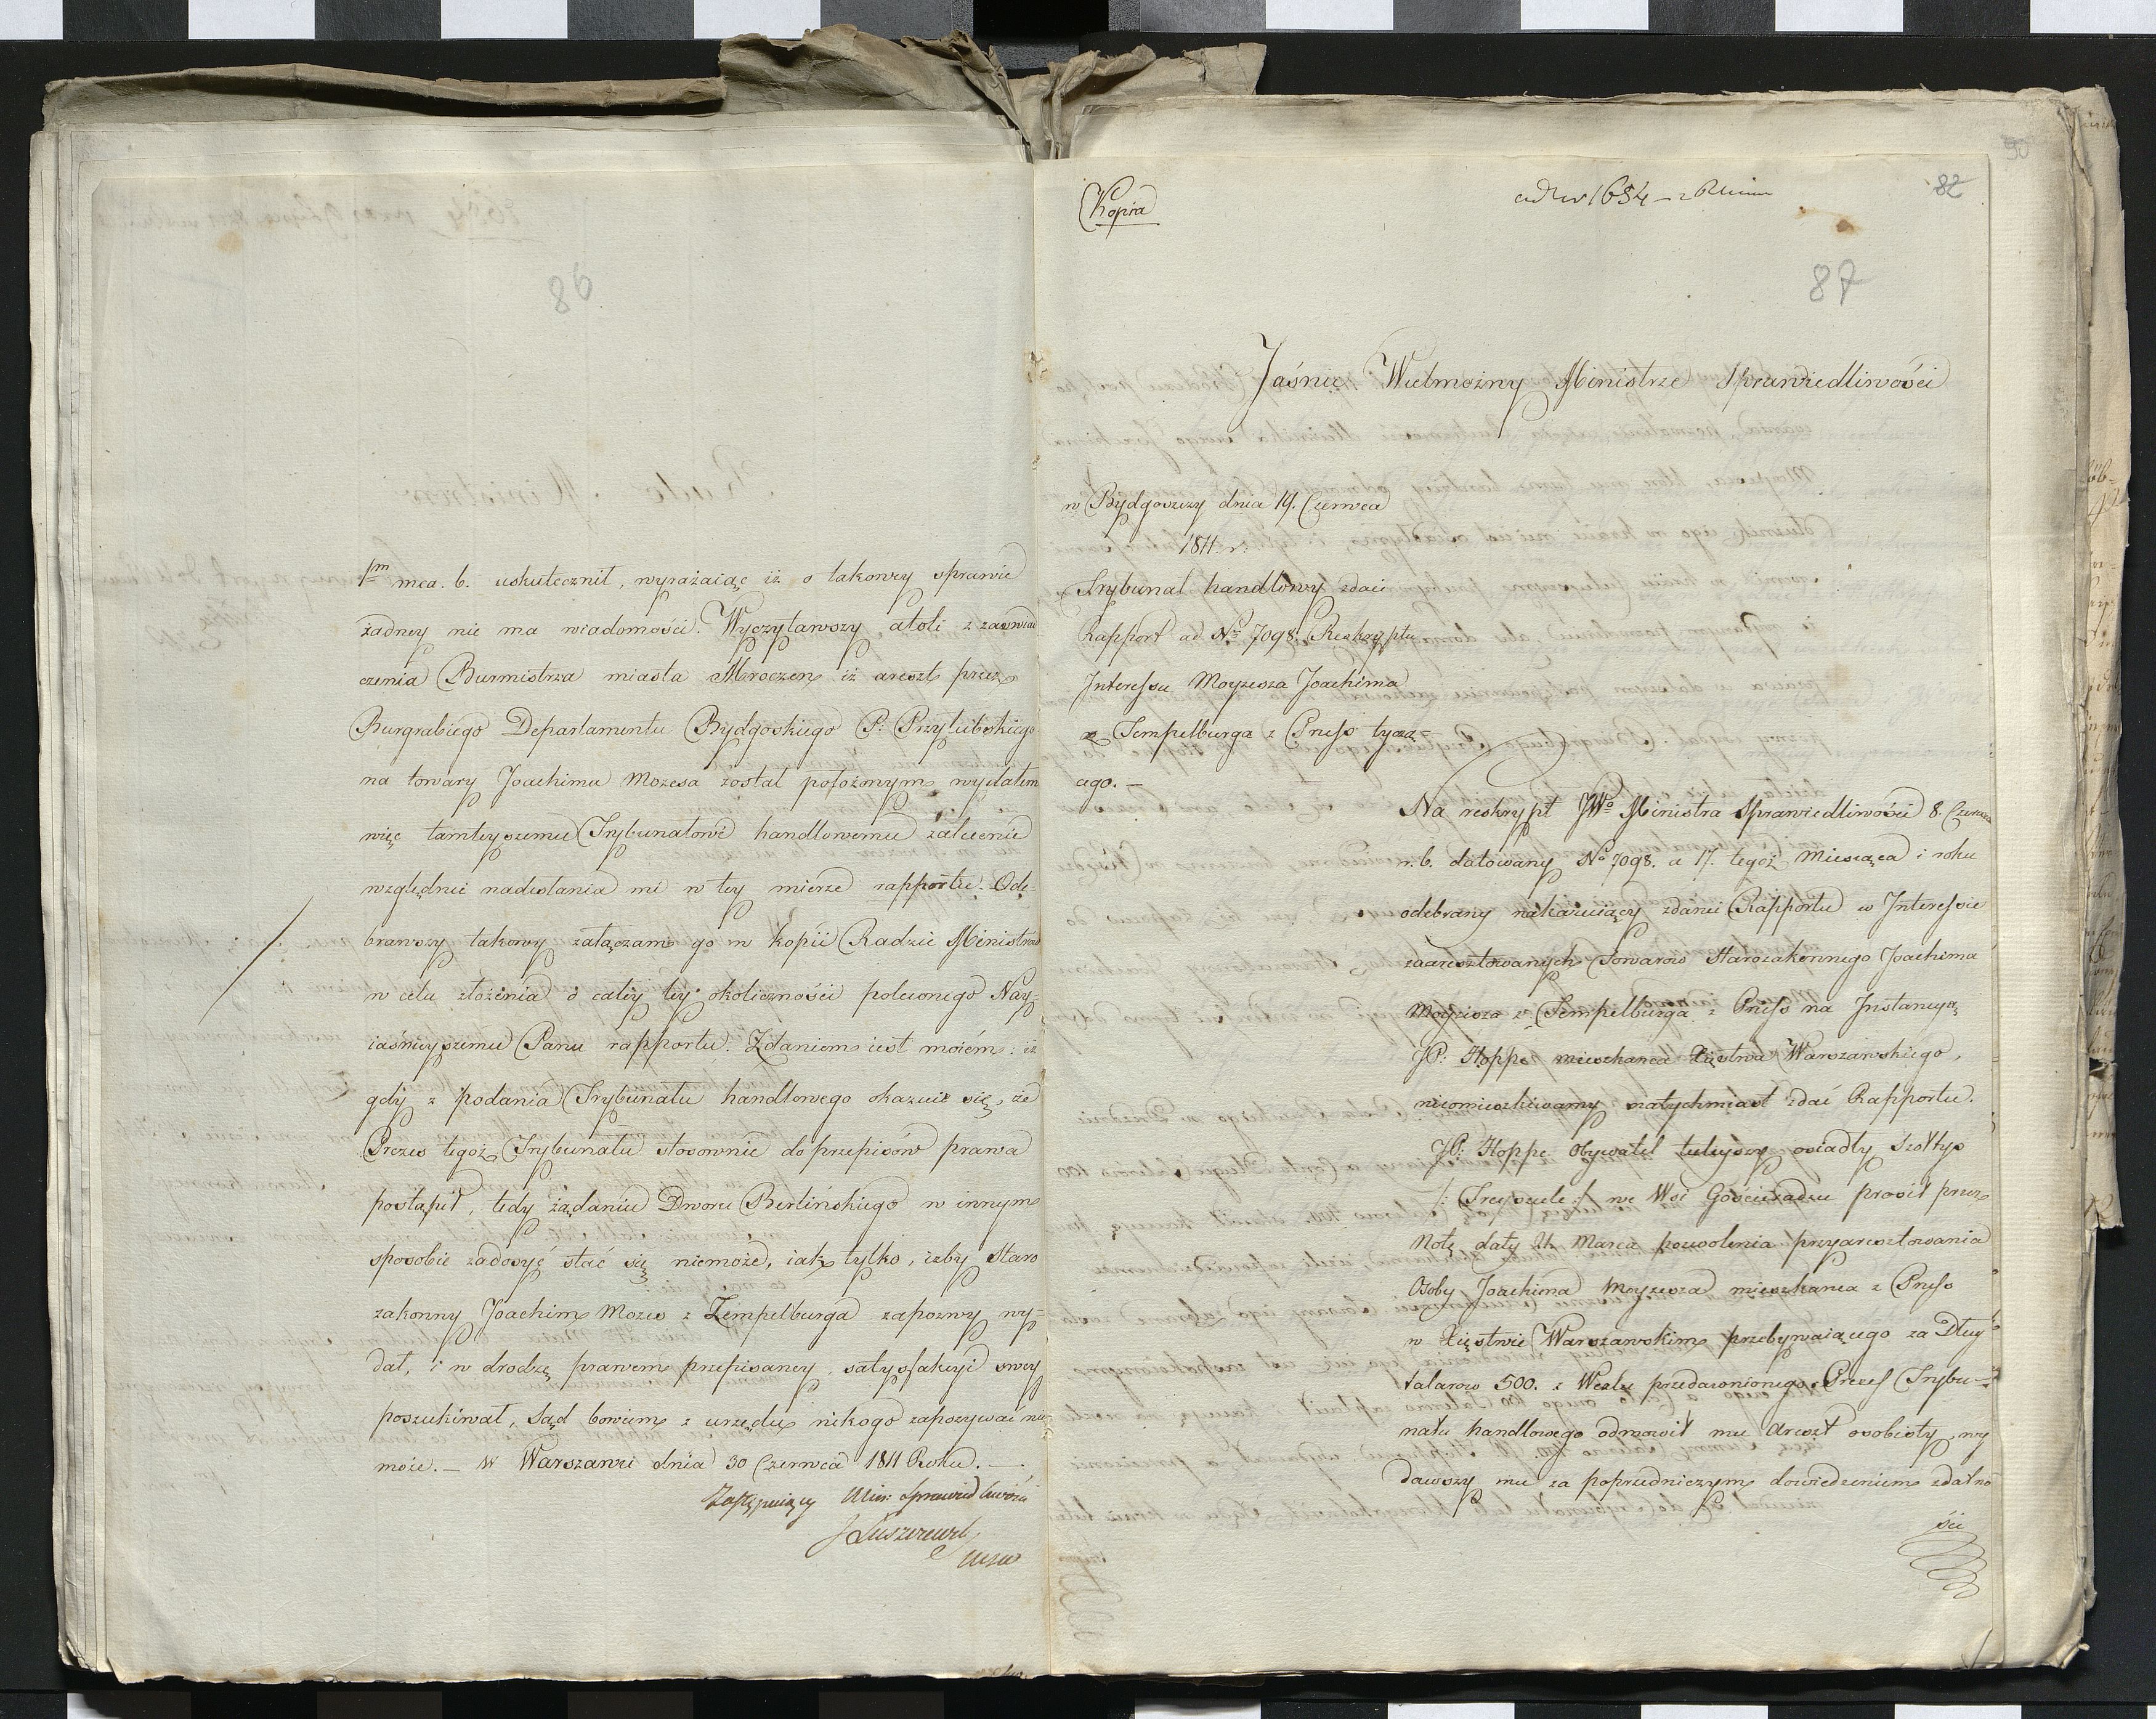 86
1m mca. b. uskutecznił, wyrażaiąc iż o takowey sprawie
żadney nie ma wiadomości. Wyczytawszy atoli z zaświad
czenia Burmistrza miasta Mroczen iż areszt przez
Burgrabiego Departamentu Bydgoskiego P: Przyłubskiego
na towary Joachima Mozesa został położonym wydałem
więc tamteyszemu Trybunałowi handlowemu zalecenie
względnie nadesłania mi w tey mierze rapportu. Ode-
brawszy takowy załączam go w kopii Radzie Ministrów
w celu złożenia o całey tey okoliczności poleconego Nay-
iaśnieyszemu Panu rapportu. Zdaniem iest moiem: iż
gdy z podania Trybunału handlowego okazuie się, że
Prezes tegoż Trybunału stosownie do przepisów prawa
postąpił, tedy żądaniu Dworu Berlińskiego w innym
sposobie zadosyć stać się niemoże, iak tylko, iżby Staro
zakonny Joachim Mozes z Zempelburga zapozwy wy-
dał, i w drodze prawem przepisaney satysfakcyi swey
poszukiwał, Sąd bowiem z urzędu nikogo zapozywać nie
może. — W Warszawie dnia 30 Czerwca 1811 Roku. —
Zastępuiący Min: Sprawiedliwości
J Łuszczewski
Kopia
ad Nr 1654
82
90
87
Jaśnie Wielmożny Ministrze Sprawiedliwości
w Bydgoszczy dnia 19. Czerwca
1811 r.
Trybunał handlowy zdaie
Rapport ad No 7098. Reskryptu
Interessu Moyzesza Joachima
z Tempelburga z Pruss tycz-
cego. —
Na reskrypt JWo Ministra Sprawiedliwości 8. Czerwca
r. b. datowany No 7098. a 17. tegoż Miesiąca i roku
odebrany nakazuiący zdanie Rapportu w Interessie
zaaresztowanych Towarów Starozakonnego Joachima
Moyzesza z Tempelburga z Pruss na Instancyą
JP: Hoppe mieszkańca Xięstwa Warszawskiego,
nieomieszkiwamy natychmiast zdać Rapportu.
JP: Hoppe Obywatel tuteyszy osiadły Szołtys
/: Freyschulz :/ we Wsi Gościeradzu prosił przez
Notę daty 21. Marca pozwolenia przyaresztowania
Osoby Joachima Moyzesza mieszkańca z Pruss
w Xięstwie Warszawskim przebywaiącego za Dług
talarow 500. z Wexlu przedawnionego. Prezes Trybu-
nału handlowego odmowił mu Areszt osobisty, wy
dawszy mu za poprzedniczym dowiedzeniem zdatno
ści